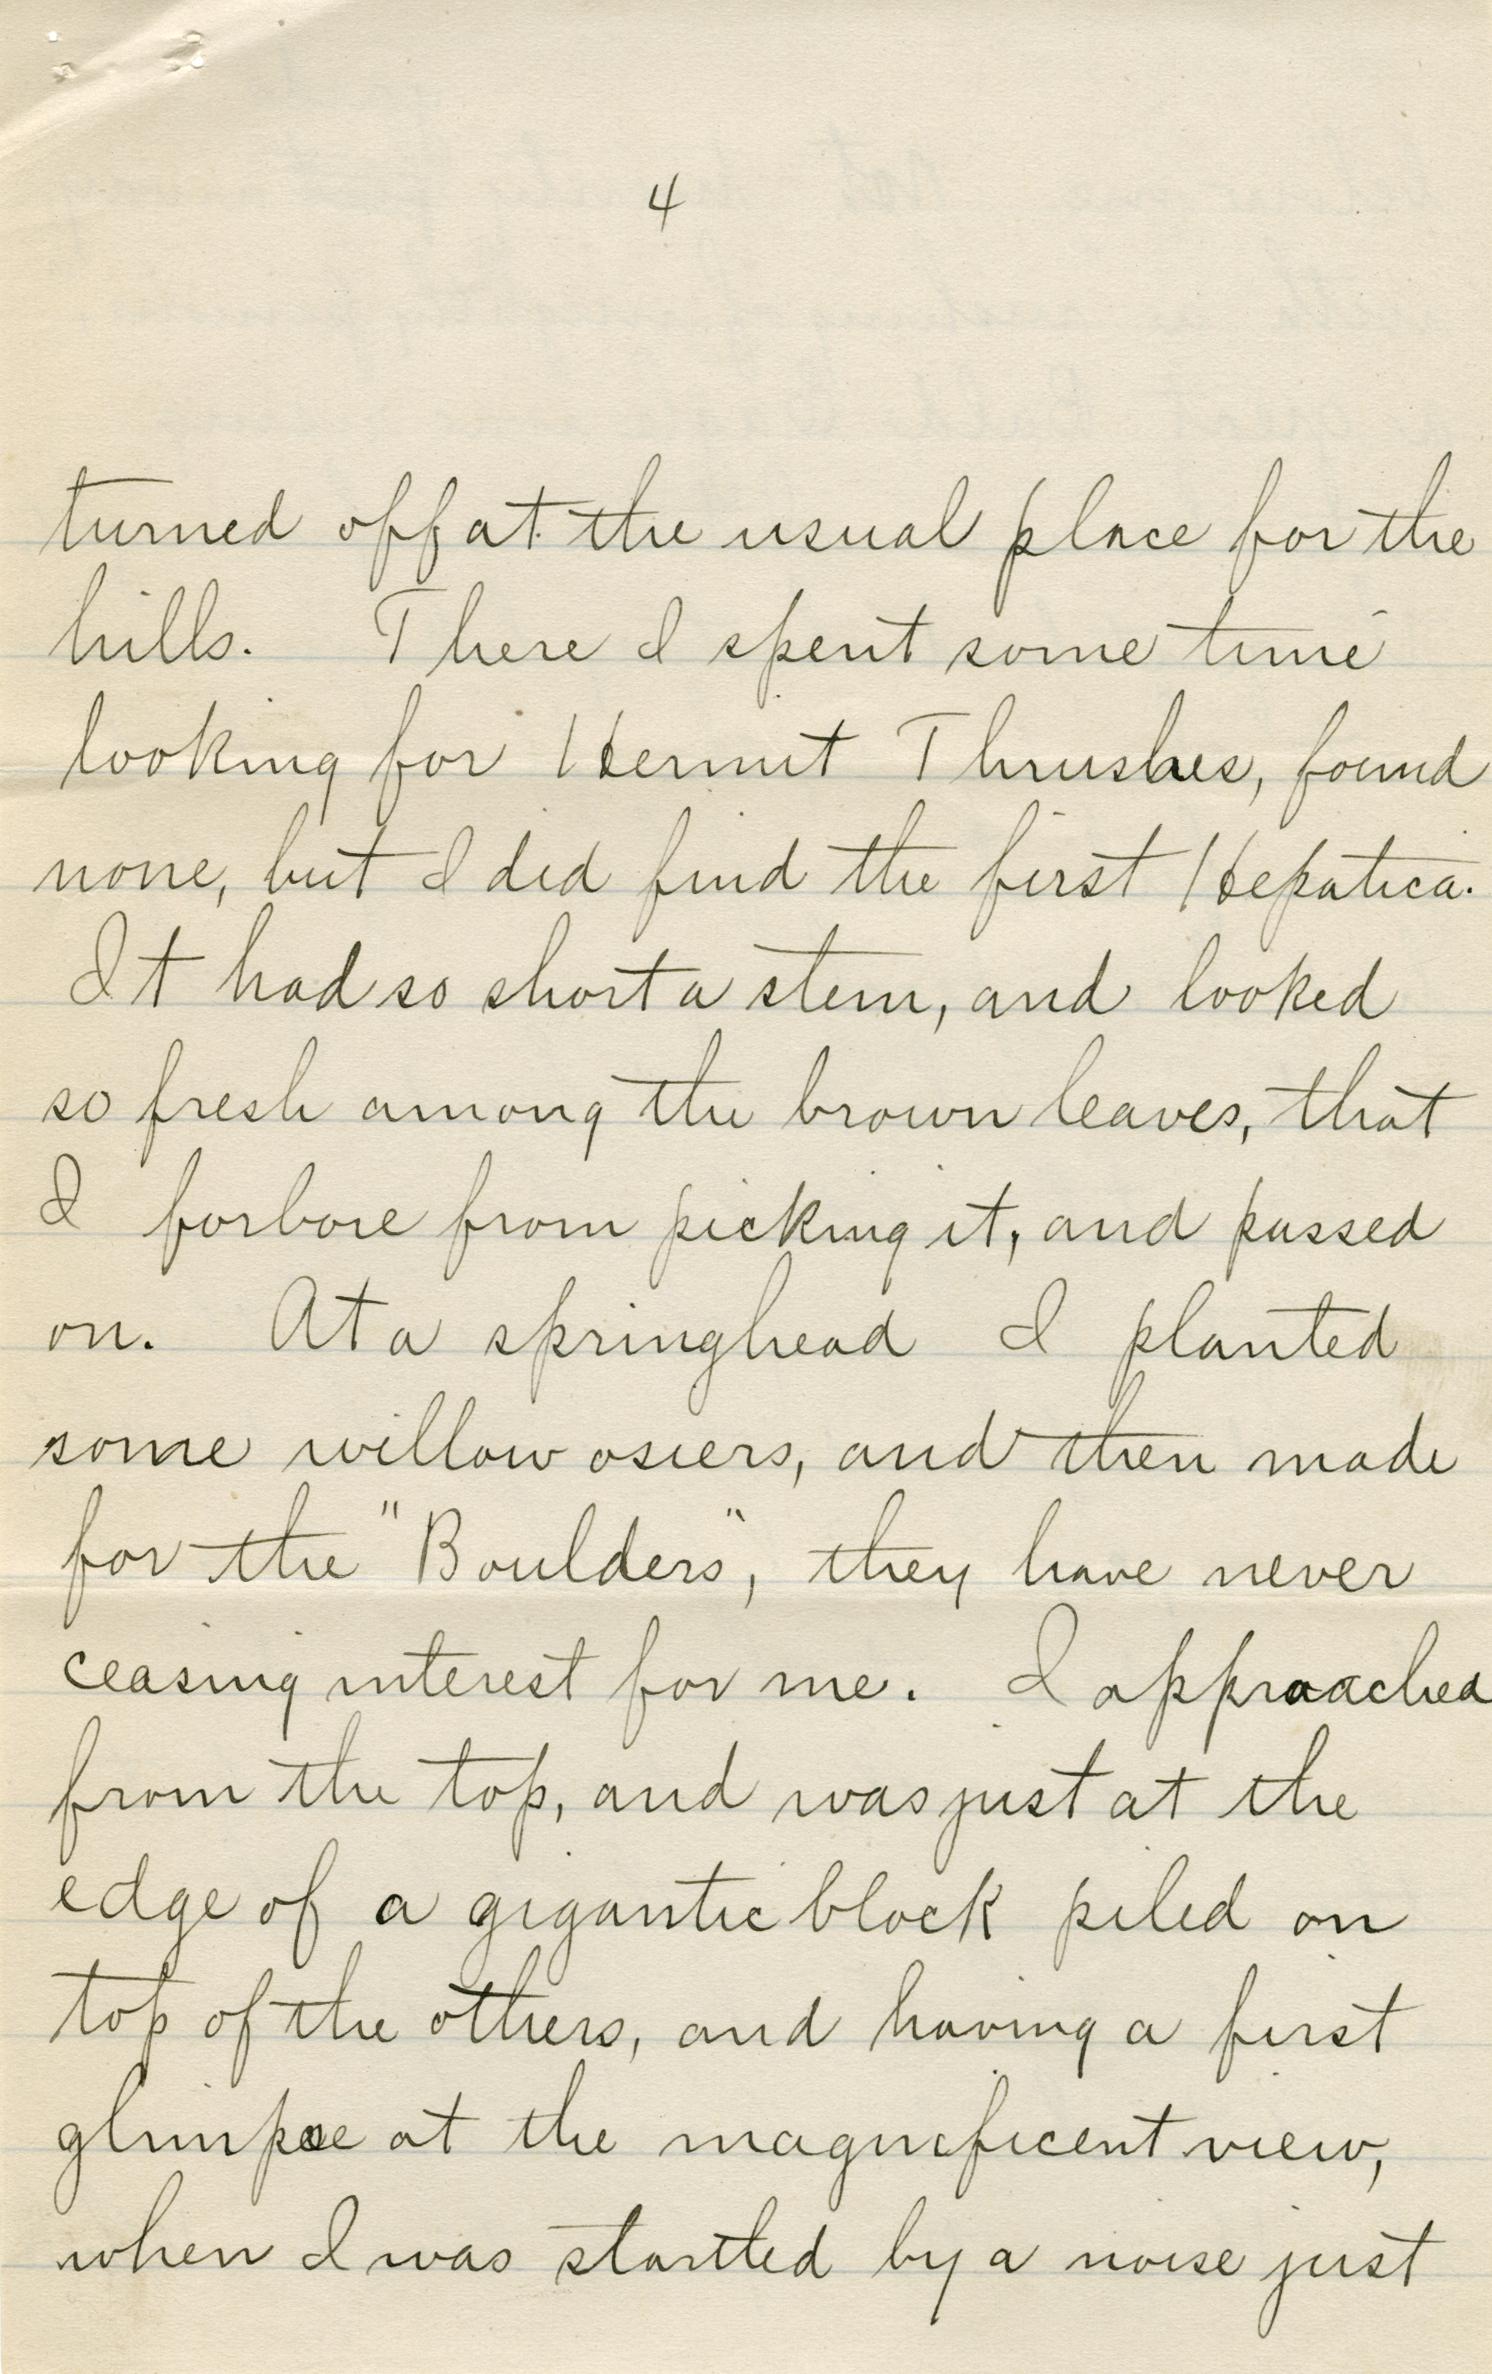 4
turned off at the usual place for the
hills. There I spent some time
looking for Hermit Thrushes, found
none, but I did find the first Hepatica.
It had so short a stem, and looked
so fresh among the brown leaves, that
I forbore from picking it, and passed
on. At a springhead I planted
some willow osiers, and then made
for the "Boulders", they have never
ceasing interest for me. I approached
from the top, and was just at the
edge of a gigantic block piled on
top of the others, and having a first
glimpse at the magnificent view,
when I was startled by a noise just